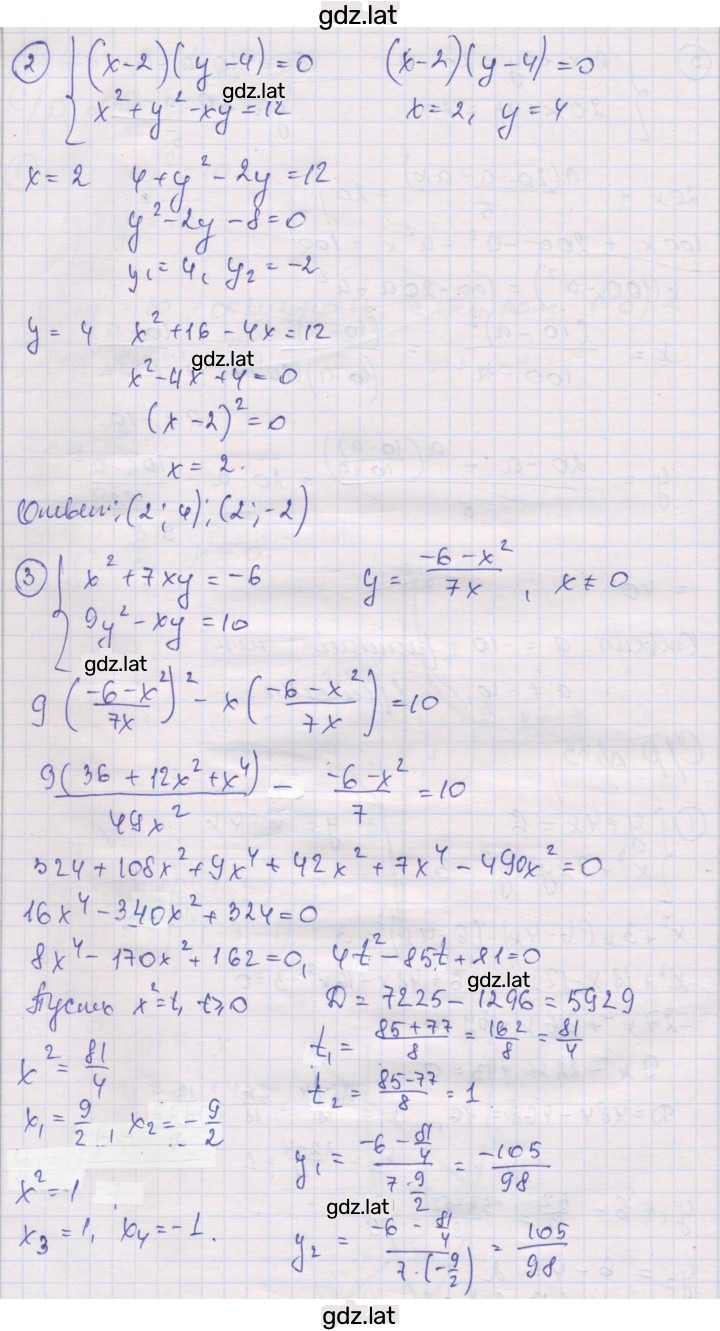 gdz.lat
② { (x-2)(y-4)=0    (x-2)(y-4)=0
gdz.lat
x²+y²-xy=12    x=2, y=4
x=2    4+y²-2y=12
y²-2y-8=0
y₁=4, y₂=-2
y=4    x²+16-4x=12
gdz.lat
x²-4x+4=0
(x-2)²=0
x=2.
Ответ: (2; 4); (2; -2)
③ { x²+7xy=-6    y=(-6-x²)/(7x), x≠0
9y²-xy=10
gdz.lat
9((-6-x²)/(7x))²-x((-6-x²)/(7x))=10
9(36+12x²+x⁴)/(49x²) - (-6-x²)/7=10
324+108x²+9x⁴+42x²+7x⁴-490x²=0
16x⁴-340x²+324=0
8x⁴-170x²+162=0, 4t²-85t+81=0
gdz.lat
Пусть x²=t, t≥0    D=7225-1296=5929
x²=81/4    t₁=(85+77)/8=162/8=81/4
x₁=9/2, x₂=-9/2    t₂=(85-77)/8=1.
x²=1    y₁=(-6-81/4)/(7·9/2)=-105/98
gdz.lat
x₃=1, x₄=-1.    y₂=(-6-81/4)/(7·(-9/2))=105/98
gdz.lat